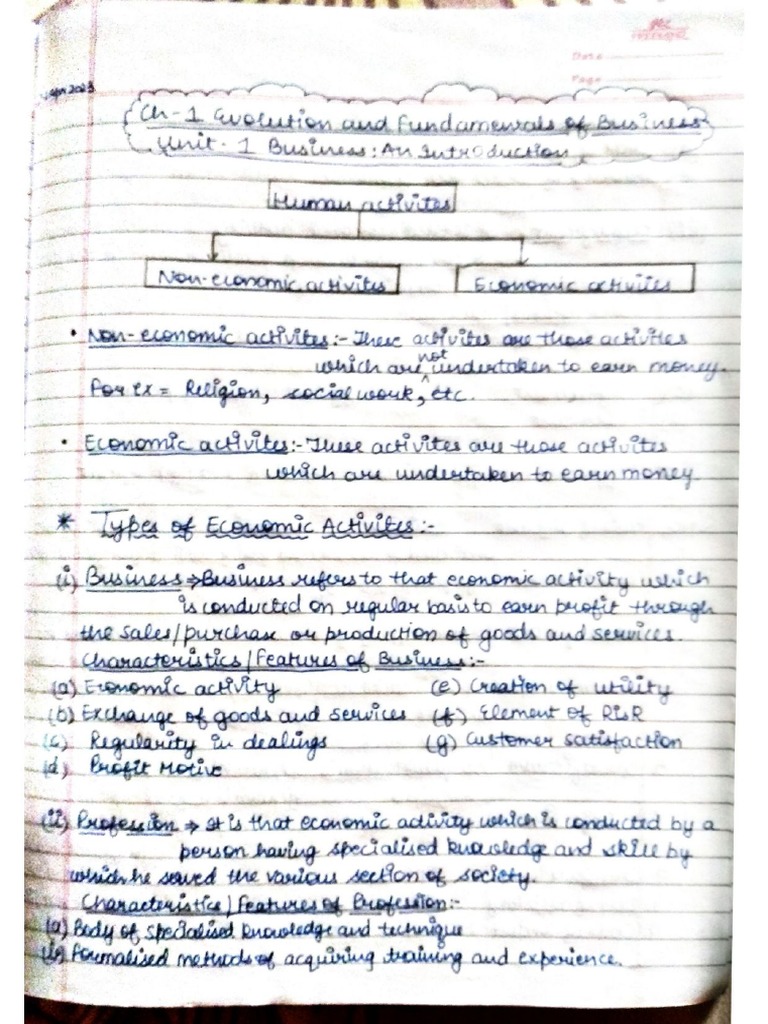 Date
Page
Ch-1 Evolution and Fundamentals of Business
Unit-1 Business: An Introduction
Human activites
Non-economic activites
Economic activites
• Non-economic activites:- These activites are those activities
which are not undertaken to earn money.
For ex = Religion, social work, etc.
• Economic activites:- These activites are those activites
which are undertaken to earn money.
* Types of Economic Activites:-
(i) Business ⇒ Business refers to that economic activity which
is conducted on regular basis to earn profit through
the sales/purchase or production of goods and services.
Characteristics/Features of Business:-
(a) Economic activity (e) Creation of utility
(b) Exchange of goods and services (f) Element of Risk
(c) Regularity in dealings (g) Customer satisfaction
(d) Profit Motive
(ii) Profession ⇒ It is that economic activity which is conducted by a
person having specialised knowledge and skill by
which he served the various section of society.
Characteristics/Features of Profession:-
(a) Body of specialised knowledge and technique
(b) Formalised methods of acquiring training and experience.